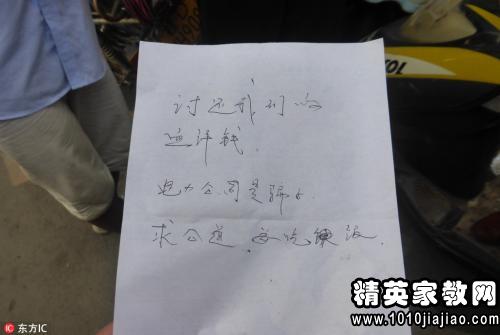 讨还我们的
血汗钱.
电力公司是骗子.
求公道.要吃饭.
东方IC
精英家教网
www.1010jiajiao.com